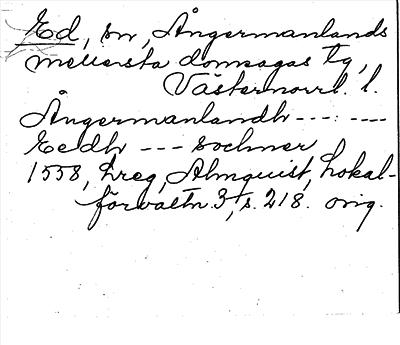 Ed, sn, Ångermanlands
mellersta domsagas tg,
Västernorrl. l.
Ångermanlandh ---:----
Eedh --- sochner
1558, Lreg, Almquist, Lokal-
förvaltn. 3, s. 218. orig.